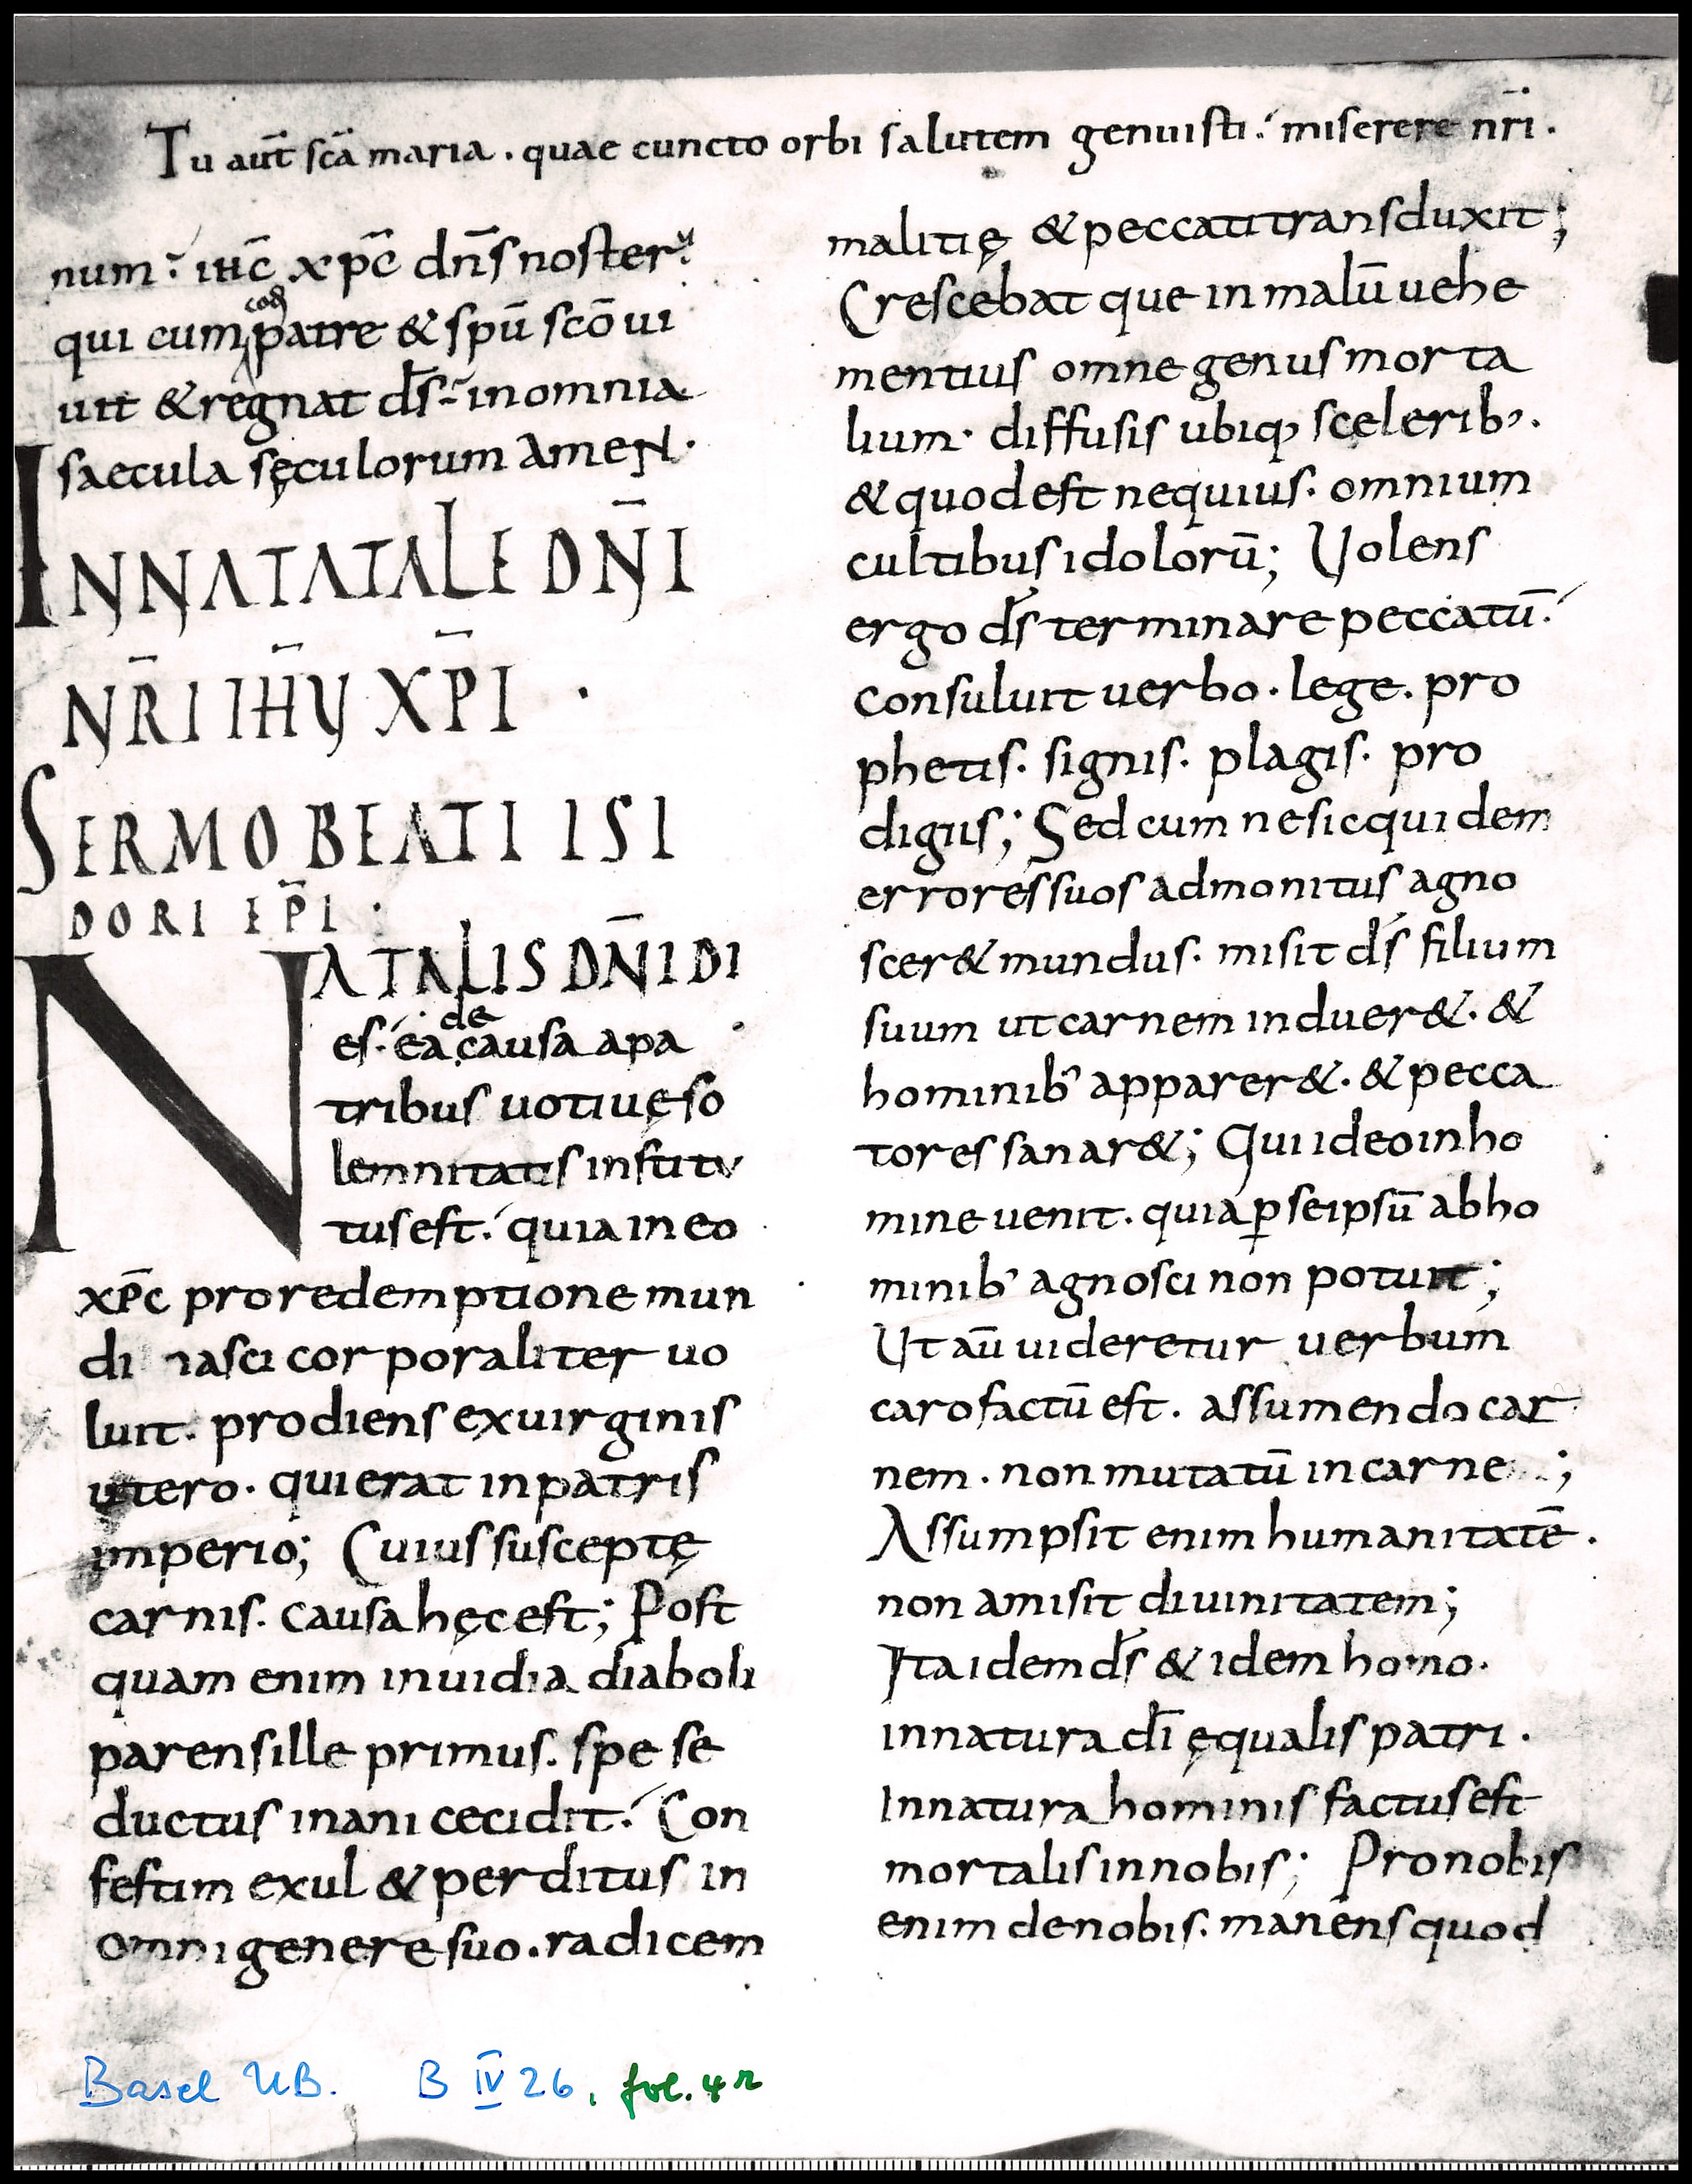 Tu aut̄ sc̄a maria . quae cuncto orbi salutem genuisti :́ miserere nr̄i .
num :́ iħc̄ xp̄c dn̄s noster .
qui cum coā patre & spū scō ui
uit & regnat d̄s :́ in omnia
saecula sęculorum AmeN ·
INNATATALE DN̄I
NR̄I IH̄Y XP̄I ·
SERMO BEATI ISI
DORI EP̄I :
NATALIS DN̄I DI
de
es · ea causa a pa
tribus uotiuę so
lemnitatis institu
tus est :́ quia in eo
xp̄c pro redemptione mun
di nasci corporaliter uo
luit · prodiens ex uirginis
utero · qui erat in patris
imperio ; Cuius susceptę
carnis · causa hęc est ; Post
quam enim inuidia diaboli
parens ille primus · spe se
ductus inani cecidit :́ Con
festim exul & perditus in
omni genere suo · radicem
malitię & peccati transduxit ;
Crescebat que in malū uehe
mentius omne genus morta
lium · diffusis ubiq; scęlerib; .
& quod est nequius · omnium
cultibus idolorū ; Uolens
ergo d̄s terminare peccatū :́
consuluit uerbo · lege · pro
phetis · signis · plagis · pro
digiis ; Sed cum ne sic quidem
errores suos admonitus agno
scer& mundus · misit d̄s filium
suum ut carnem induer& · &
hominib; apparer& · & pecca
tores sanar& ; Qui ideo in ho
mine uenit · quia ꝑ se ipsū ab ho
minib; agnosci non potuit ;
Ut aū uideretur uerbum
caro factū est · assumendo car
nem · non mutatū in carne ;
Assumpsit enim humanitatē .
non amisit diuinitatem ;
Ita idem d̄s & idem homo ·
in natura dī ęqualis patri .
In natura hominis factus est
mortalis in nobis ; Pro nobis
enim de nobis · manens quod
Basel UB. B IV 26, fol. 4r